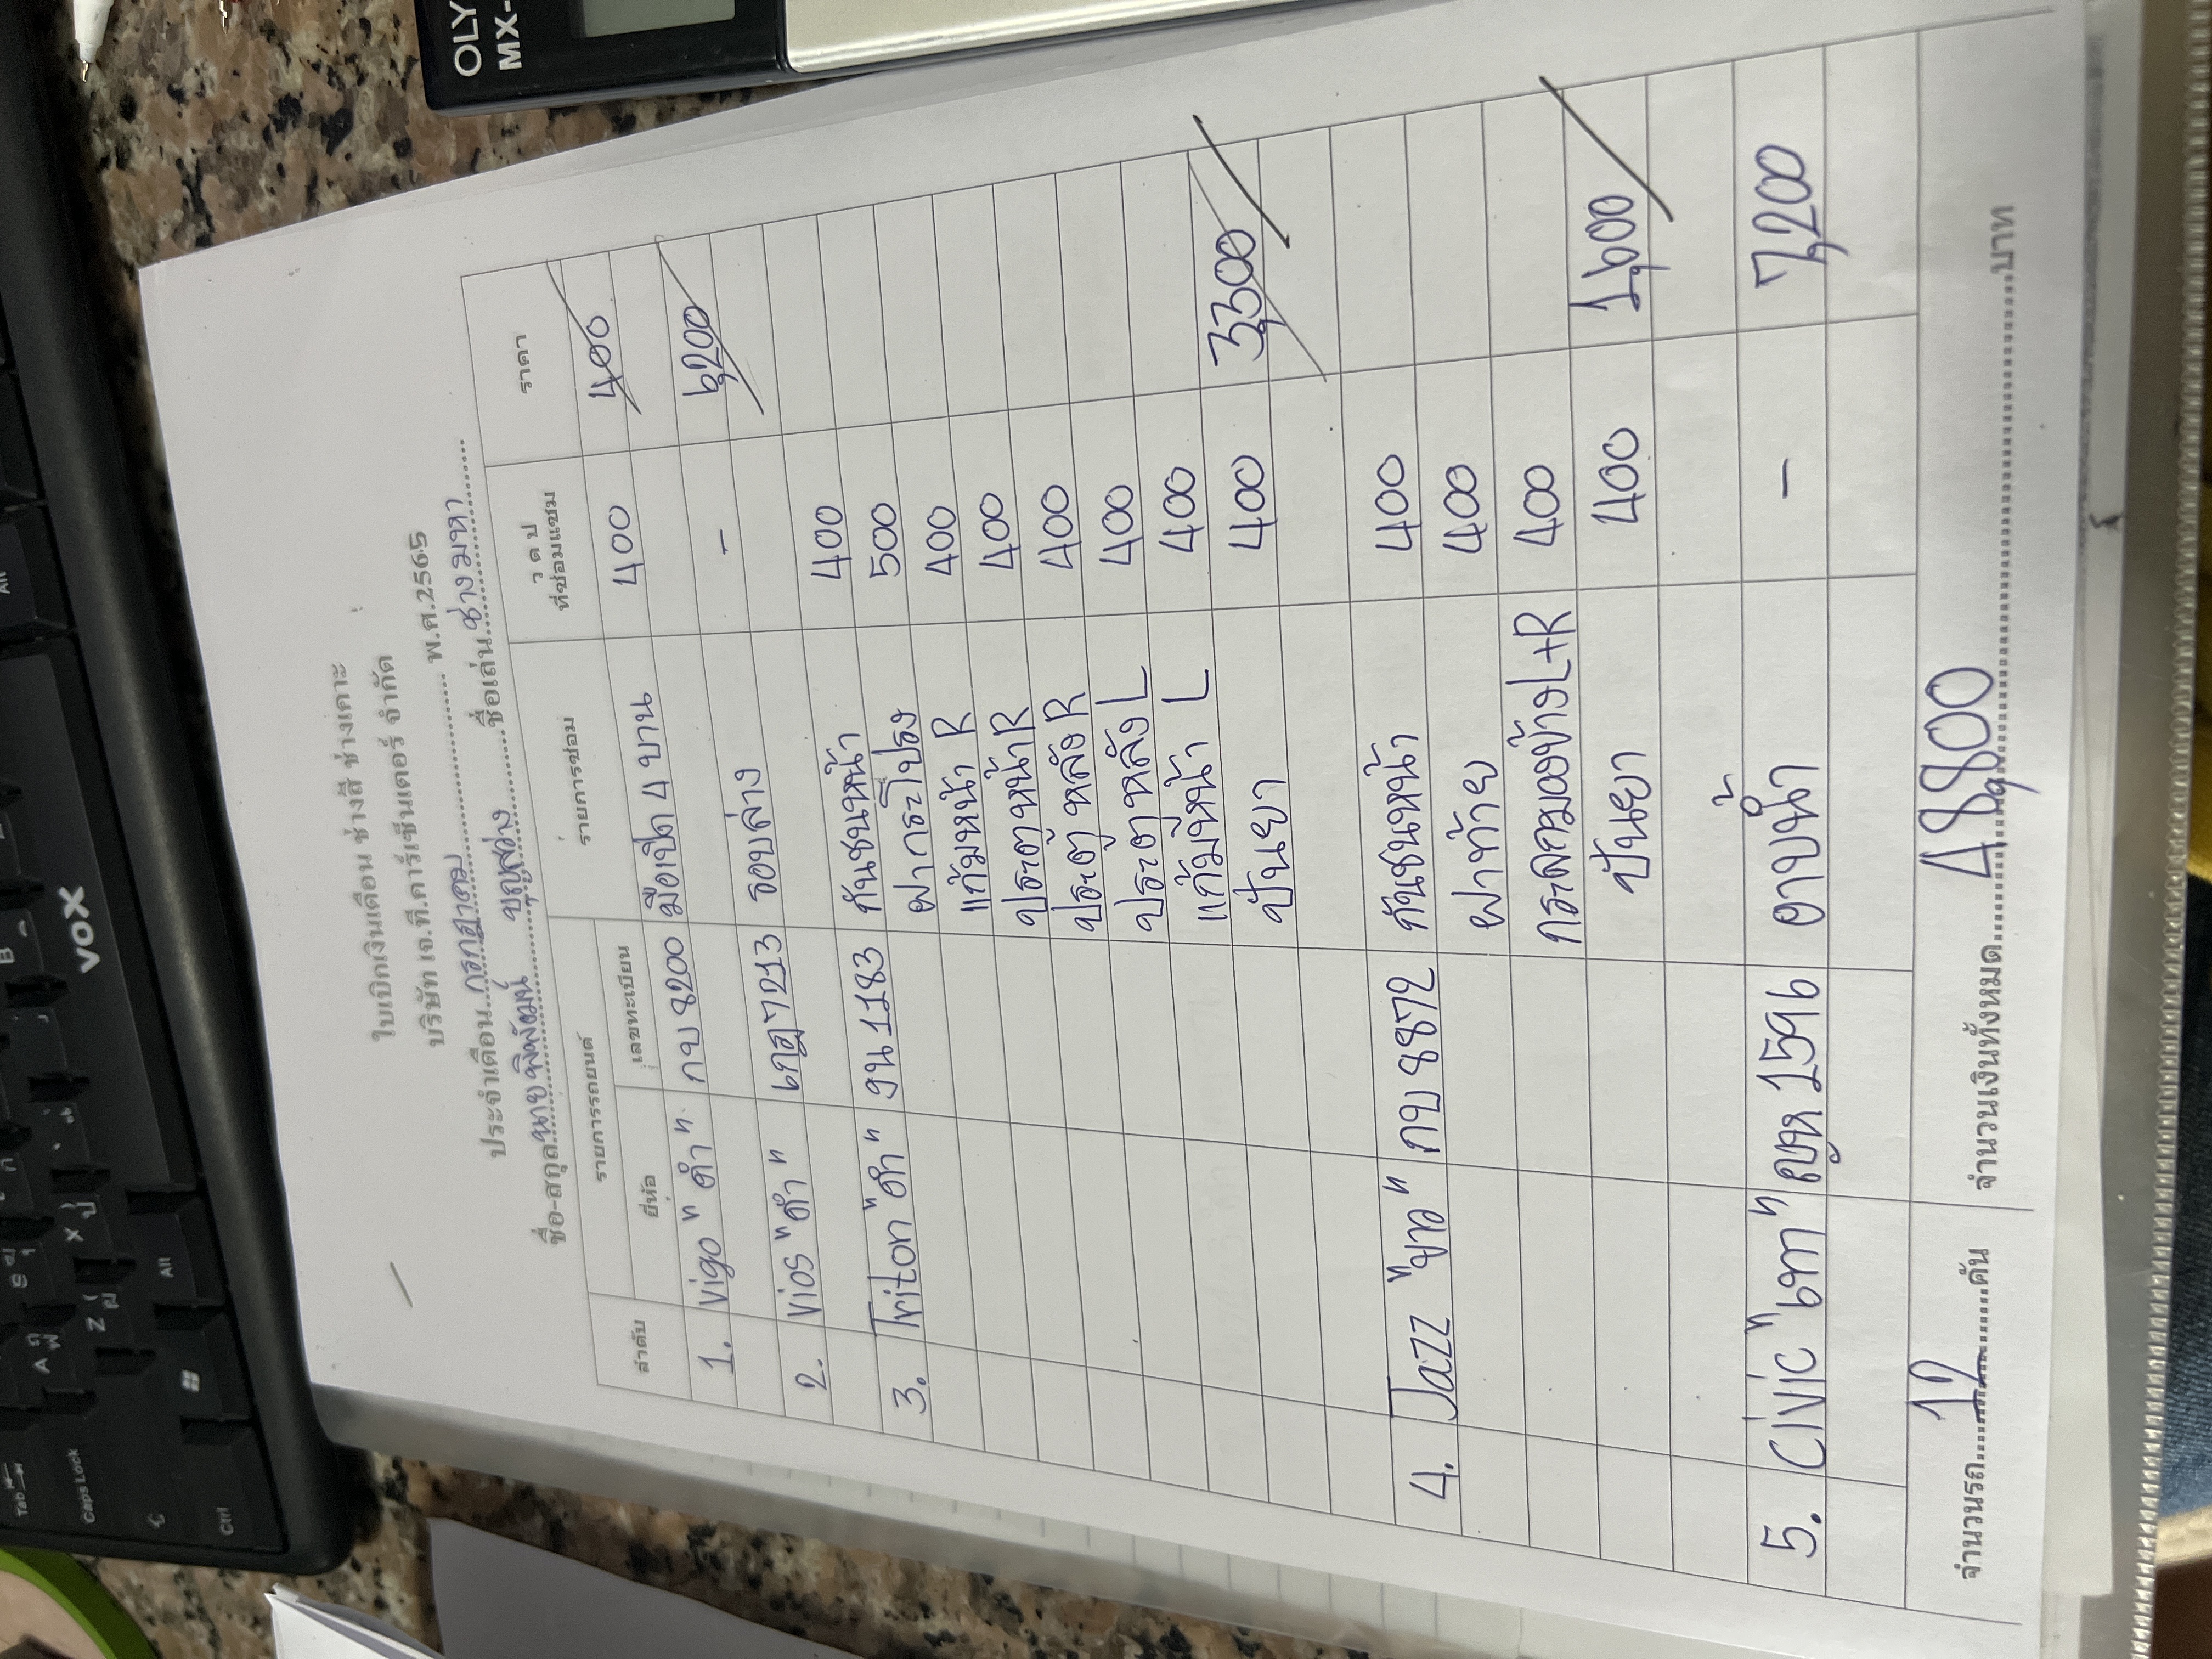 ใบเบิกเงินเดือน ช่างสี ช่างเคาะ
บริษัท เจ.ที.คาร์เซ็นเตอร์ จำกัด
ประจำเดือน กรกฎาคม พ.ศ.2565
ชื่อ-สกุล นายพิพัฒน์ ชื่อเล่น ช่างมหา
ลำดับ รายการรถยนต์ รายการซ่อม ว ด ป ที่ซ่อมแซม ราคา
ยี่ห้อ เลขทะเบียน
1. Vigo "ดำ" กบ 8200 มือเปิด 4 บาน 400 400
2. Vios "ดำ" 7213 รอบล่าง - 6,200
3. Triton "ดำ" งน 1183 กันชนหน้า 400
ฝากระโปรง 500
แก้มหน้า R 400
ประตูหน้า R 400
ประตูหลัง R 400
ประตูหลัง L 400
แก้มหน้า L 400
ปั่นยา 400 3,300
4. Jazz "ขาว" กบ 8872 กันชนหน้า 400
ฝาท้าย 400
กระจกมองข้าง L+R 400
ปั่นยา 400 1,600
5. Civic "เทา" 1596 อาบน้ำ - 7,200
จำนวนรถ 12 คัน จำนวนเงินทั้งหมด 48,800 บาท
OLY
MX-
VOX
Tab
Caps Lock
Ctrl
Alt
A
Z
X
B